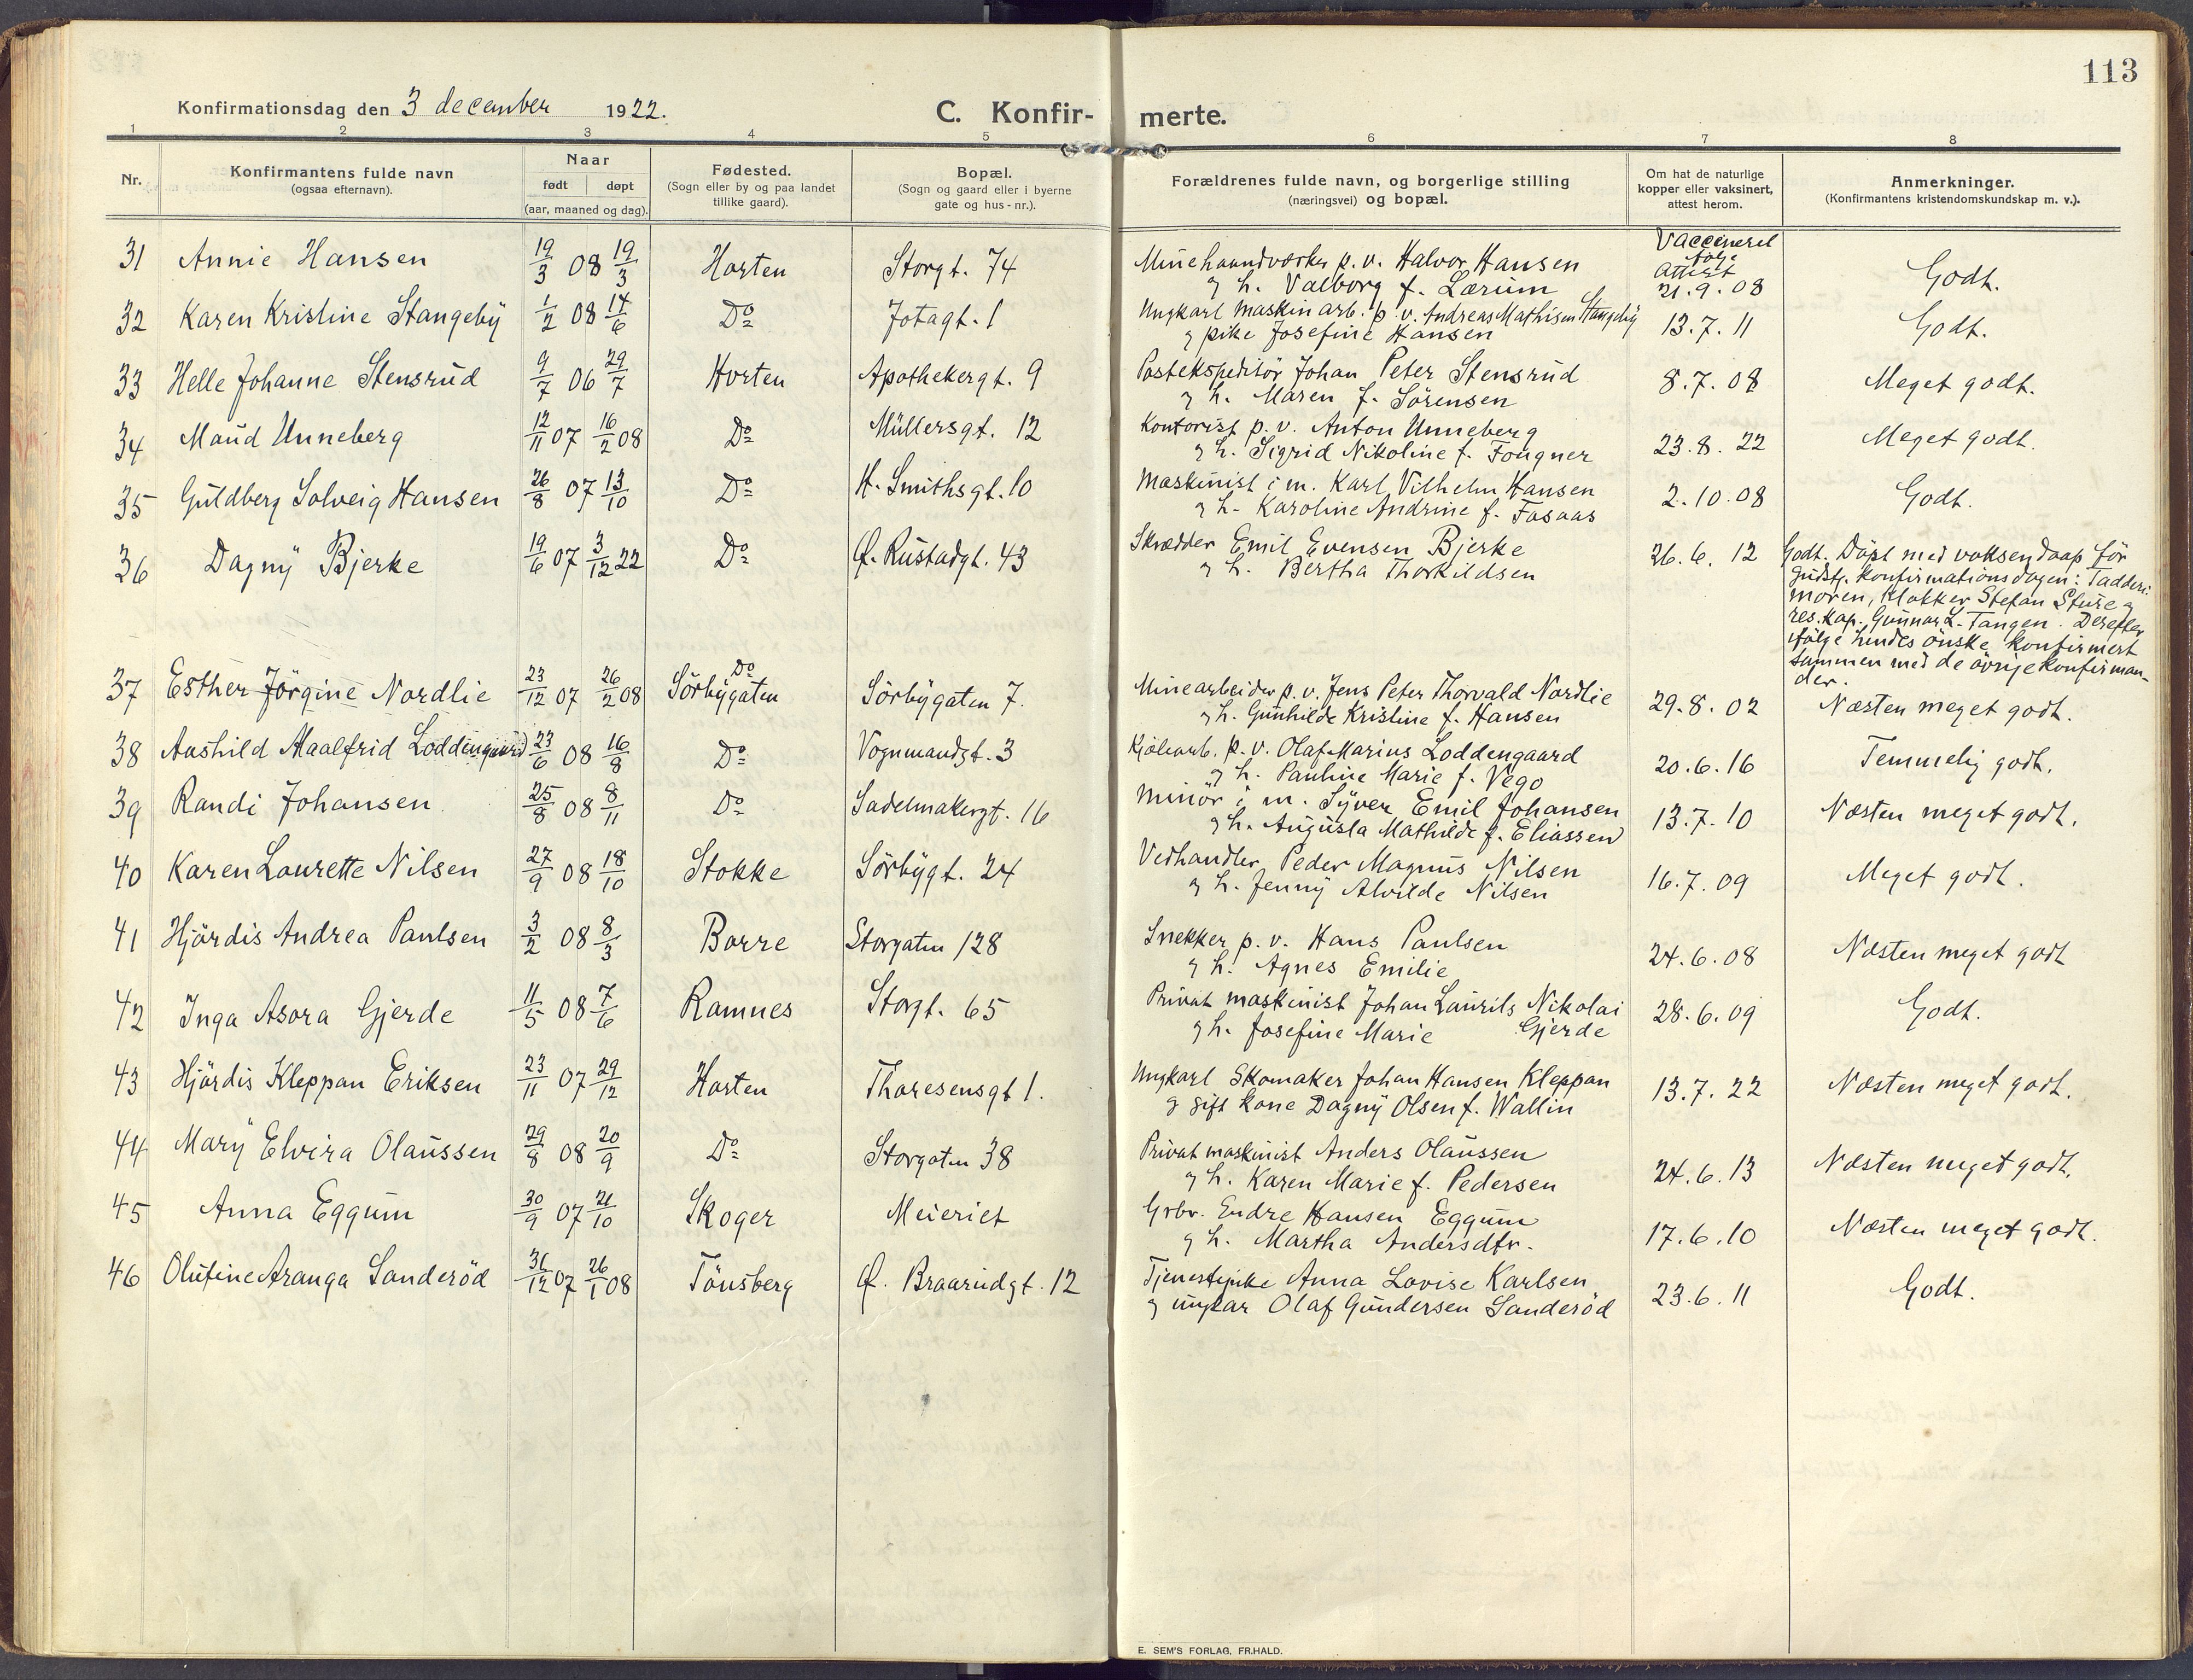 113
Konfirmationsdag den 3 december 1922.
C. Konfir- merte.
1 2 3 4 5 6 7 8
Nr.
Konfirmantens fulde navn
(ogsaa efternavn).
Naar
født døpt
(aar, maaned og dag).
Fødested.
(Sogn eller by og paa landet
tillike gaard).
Bopæl.
(Sogn og gaard eller i byerne
gate og hus-nr.).
Forældrenes fulde navn, og borgerlige stilling
(næringsvei) og bopæl.
Om hat de naturlige
kopper eller vaksinert,
attest herom.
Anmerkninger.
(Konfirmantens kristendomskundskap m. v.).
31 Annie Hansen 19/3 08 19/3 Horten Storgt. 74 Minehaandværker p. v. Halvor Hansen
g h. Valborg f. Lærum
Vaccineret
følge
attest
21.9.08 Godt.
32 Karen Kristine Stangeby 1/2 08 14/6 Do Jotagt. 1 Ungkarl maskinarb. p. v. Andreas Mathisen Stangeby
g pike Josefine Hansen 13.7.11 Godt.
33 Helle Johanne Stensrud 9/7 06 29/7 Horten Apothekergt. 9 Postekspeditör Johan Peter Stensrud
g h. Maren f. Sörensen 8.7.08 Meget godt.
34 Maud Unneberg 12/11 07 16/2 08 Do Müllersgt. 12 Kontorist p. v. Anton Unneberg
g h. Sigrid Nikoline f. Fougner 23.8.22 Meget godt.
35 Guldberg Solveig Hansen 26/8 07 13/10 Do H. Smithsgt. 10 Maskinist i m. Karl Vilhelm Hansen
g h. Karoline Andrine f. Fosaas 2.10.08 Godt.
36 Dagny Bjerke 19/6 07 3/12 22 Do Ø. Rustadgt. 43 Skrædder Emil Evensen Bjerke
g h. Bertha Thorkildsen 26.6.12 Godt. Döpt med voksendaap før
gudstj. konfirmationsdagen: Fadderi:
moren, klokker Stefan Sture g
res. kap. Gunnar L. Tangen. Derefter
ifölge hendes önske konfirmert
sammen med de övrige konfirman-
der.
37 Esther Jörgine Nordlie 23/12 07 26/2 08 Do
Sörbygaten Sörbygaten 7. Minearbeider p. v. Jens Peter Thorvald Nordlie
g h. Gunhilde Kristine f. Hansen 29.8.02 Næsten meget godt.
38 Aashild Maalfrid Loddengaard 23/6 08 16/8 Do Vognmandgt. 3 Kjölearb. p. v. Olaf Marius Loddengaard
g h. Pauline Marie f. Vego 20.6.16 Temmelig godt.
39 Randi Johansen 25/8 08 8/11 Do Sadelmakergt. 16 Minör i m. Syver Emil Johansen
g h. Augusta Mathilde f. Eliassen 13.7.10 Næsten meget godt.
40 Karen Laurette Nilsen 27/9 08 18/10 Stokke Sörbygt. 24 Vedhandler Peder Magnus Nilsen
g h. Jenny Alvilde Nilsen 16.7.09 Meget godt.
41 Hjördis Andrea Paulsen 3/2 08 8/3 Borre Storgaten 128 Snekker p. v. Hans Paulsen
g h. Agnes Emilie 24.6.08 Næsten meget godt
42 Inga Asora Gjerde 11/5 08 7/6 Ramnes Storgt. 65 Privat maskinist Johan Laurits Nikolai
g h. Josefine Marie Gjerde 28.6.09 Godt.
43 Hjördis Kleppan Eriksen 23/11 07 29/12 Horten Thoresensgt 1. Ungkarl Skomaker Johan Hansen Kleppan
g gift kone Dagny Olsen f. Wallin 13.7.22 Næsten meget godt.
44 Mary Elvira Olaussen 29/8 08 20/9 Do Storgaten 38 Privat maskinist Anders Olaussen
g h. Karen Marie f. Pedersen 24.6.13 Næsten meget godt.
45 Anna Eggum 30/9 07 21/10 Skoger Meieriet Grbr. Endre Hansen Eggum
g h. Martha Andersdtr. 17.6.10 Næsten meget godt.
46 Olufine Aranga Sanderöd 31/12 07 26/1 08 Tönsberg Ø. Braarudgt. 12 Tjenestepike Anna Lovise Karlsen
g ungkar Olaf Gundersen Sanderöd 23.6.11 Godt.
E. SEM'S FORLAG, FR.HALD.